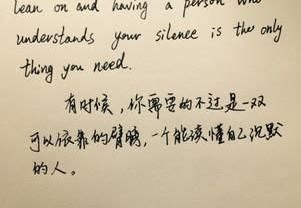 lean on and having a person who
understands your silence is the only
thing you need.
有时候，你需要的不过是一双
可以依靠的臂膀，一个能读懂自己沉默
的人。